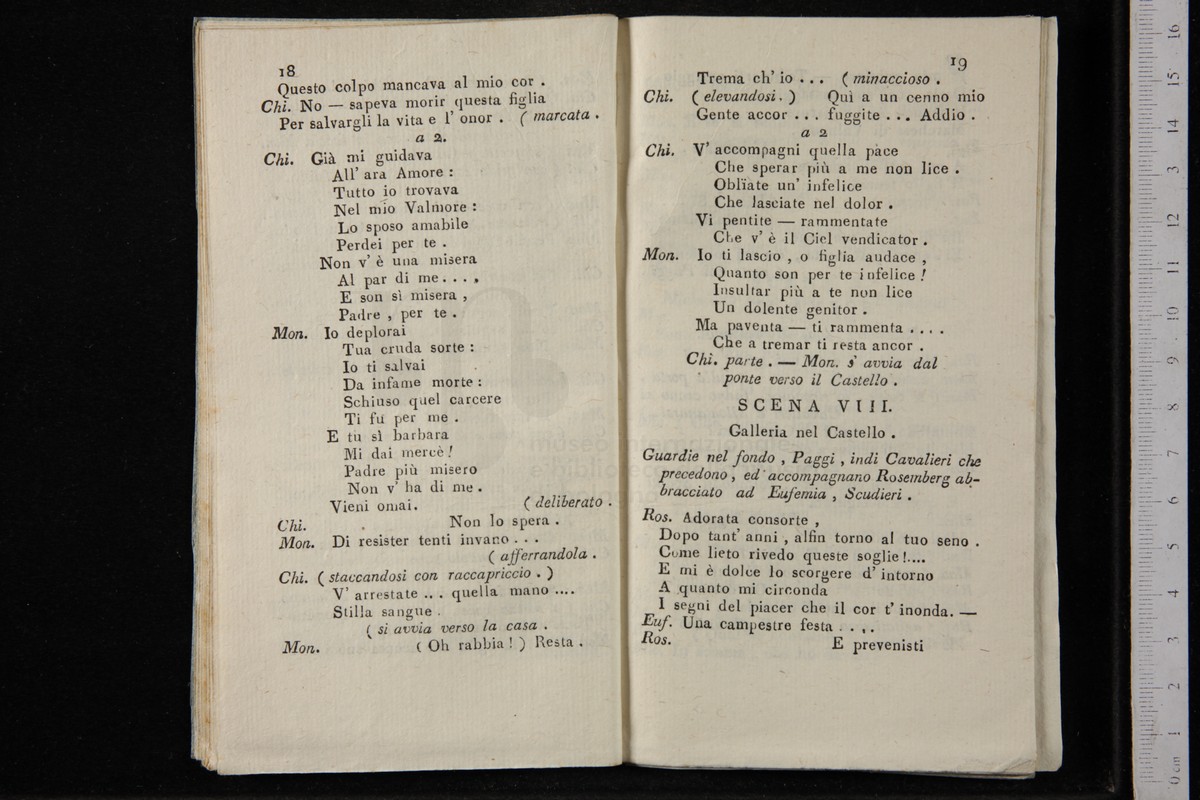 18
Questo colpo mancava al mio cor .
Chi. No — sapeva morir questa figlia
Per salvargli la vita e l' onor . ( marcata .
a 2.
Chi. Già mi guidava
All' ara Amore :
Tutto io trovava
Nel mio Valmore :
Lo sposo amabile
Perdei per te .
Non v' è una misera
Al par di me . . . .
E son sì misera ,
Padre , per te .
Mon. Io deplorai
Tua cruda sorte :
Io ti salvai
Da infame morte :
Schiuso quel carcere
Ti fu per me .
E tu sì barbara
Mi dai mercè !
Padre più misero
Non v' ha di me .
Vieni omai. ( deliberato .
Chi. Non lo spera .
Mon. Di resister tenti invano . . .
( afferrandola .
Chi. ( staccandosi con raccapriccio . )
V' arrestate . . . quella mano ....
Stilla sangue .
( si avvia verso la casa .
Mon. ( Oh rabbia ! ) Resta .
19
Trema ch' io . . . ( minaccioso .
Chi. ( elevandosi . ) Quì a un cenno mio
Gente accor . . . fuggite . . . Addio .
a 2
Chi. V' accompagni quella pace
Che sperar più a me non lice .
Oblïate un' infelice
Che lasciate nel dolor .
Vi pentite — rammentate
Che v' è il Ciel vendicator .
Mon. Io ti lascio , o figlia audace ,
Quanto son per te infelice !
Insultar più a te non lice
Un dolente genitor .
Ma paventa — ti rammenta . . . .
Che a tremar ti resta ancor .
Chi. parte . — Mon. s' avvia dal
ponte verso il Castello .
SCENA VIII.
Galleria nel Castello .
Guardie nel fondo , Paggi , indi Cavalieri che
precedono , ed accompagnano Rosemberg ab-
bracciato ad Eufemia , Scudieri .
Ros. Adorata consorte ,
Dopo tant' anni , alfin torno al tuo seno .
Come lieto rivedo queste soglie !....
E mi è dolce lo scorgere d' intorno
A quanto mi circonda
I segni del piacer che il cor t' inonda. —
Euf. Una campestre festa . . . .
Ros. E prevenisti
museo internazionale
0 cm 1 2 3 4 5 6 7 8 9 10 11 12 13 14 15 16